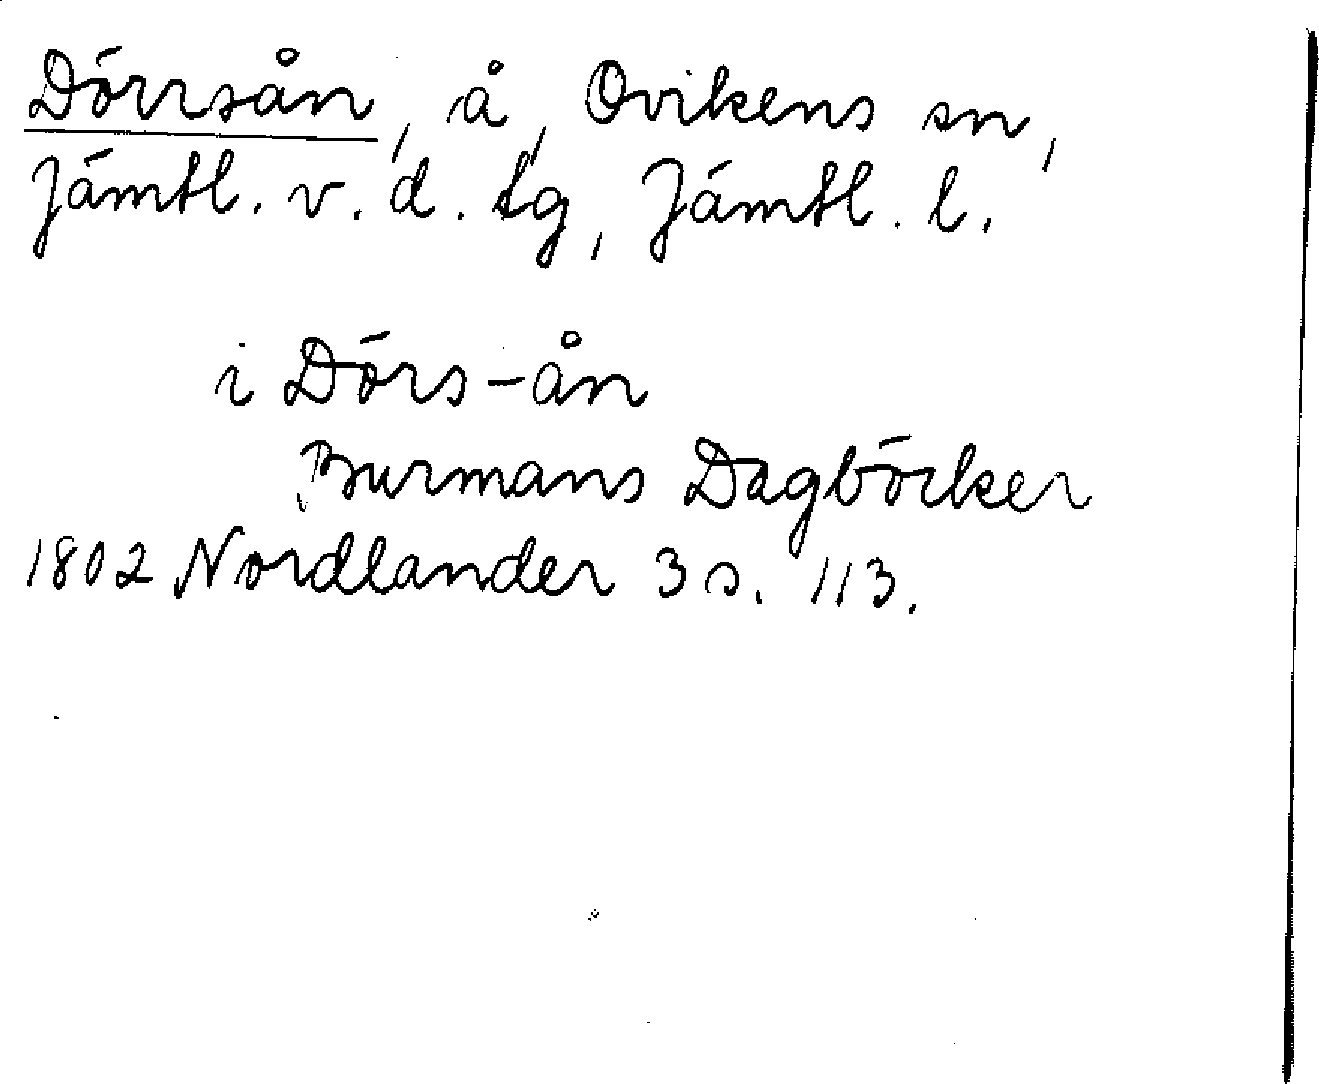 Dörrsån, å, Ovikens sn,
Jämtl. v. d. tg, Jämtl. l.
i Dörs-ån
Burmans Dagböcker
1802 Nordlander 3 s. 113.